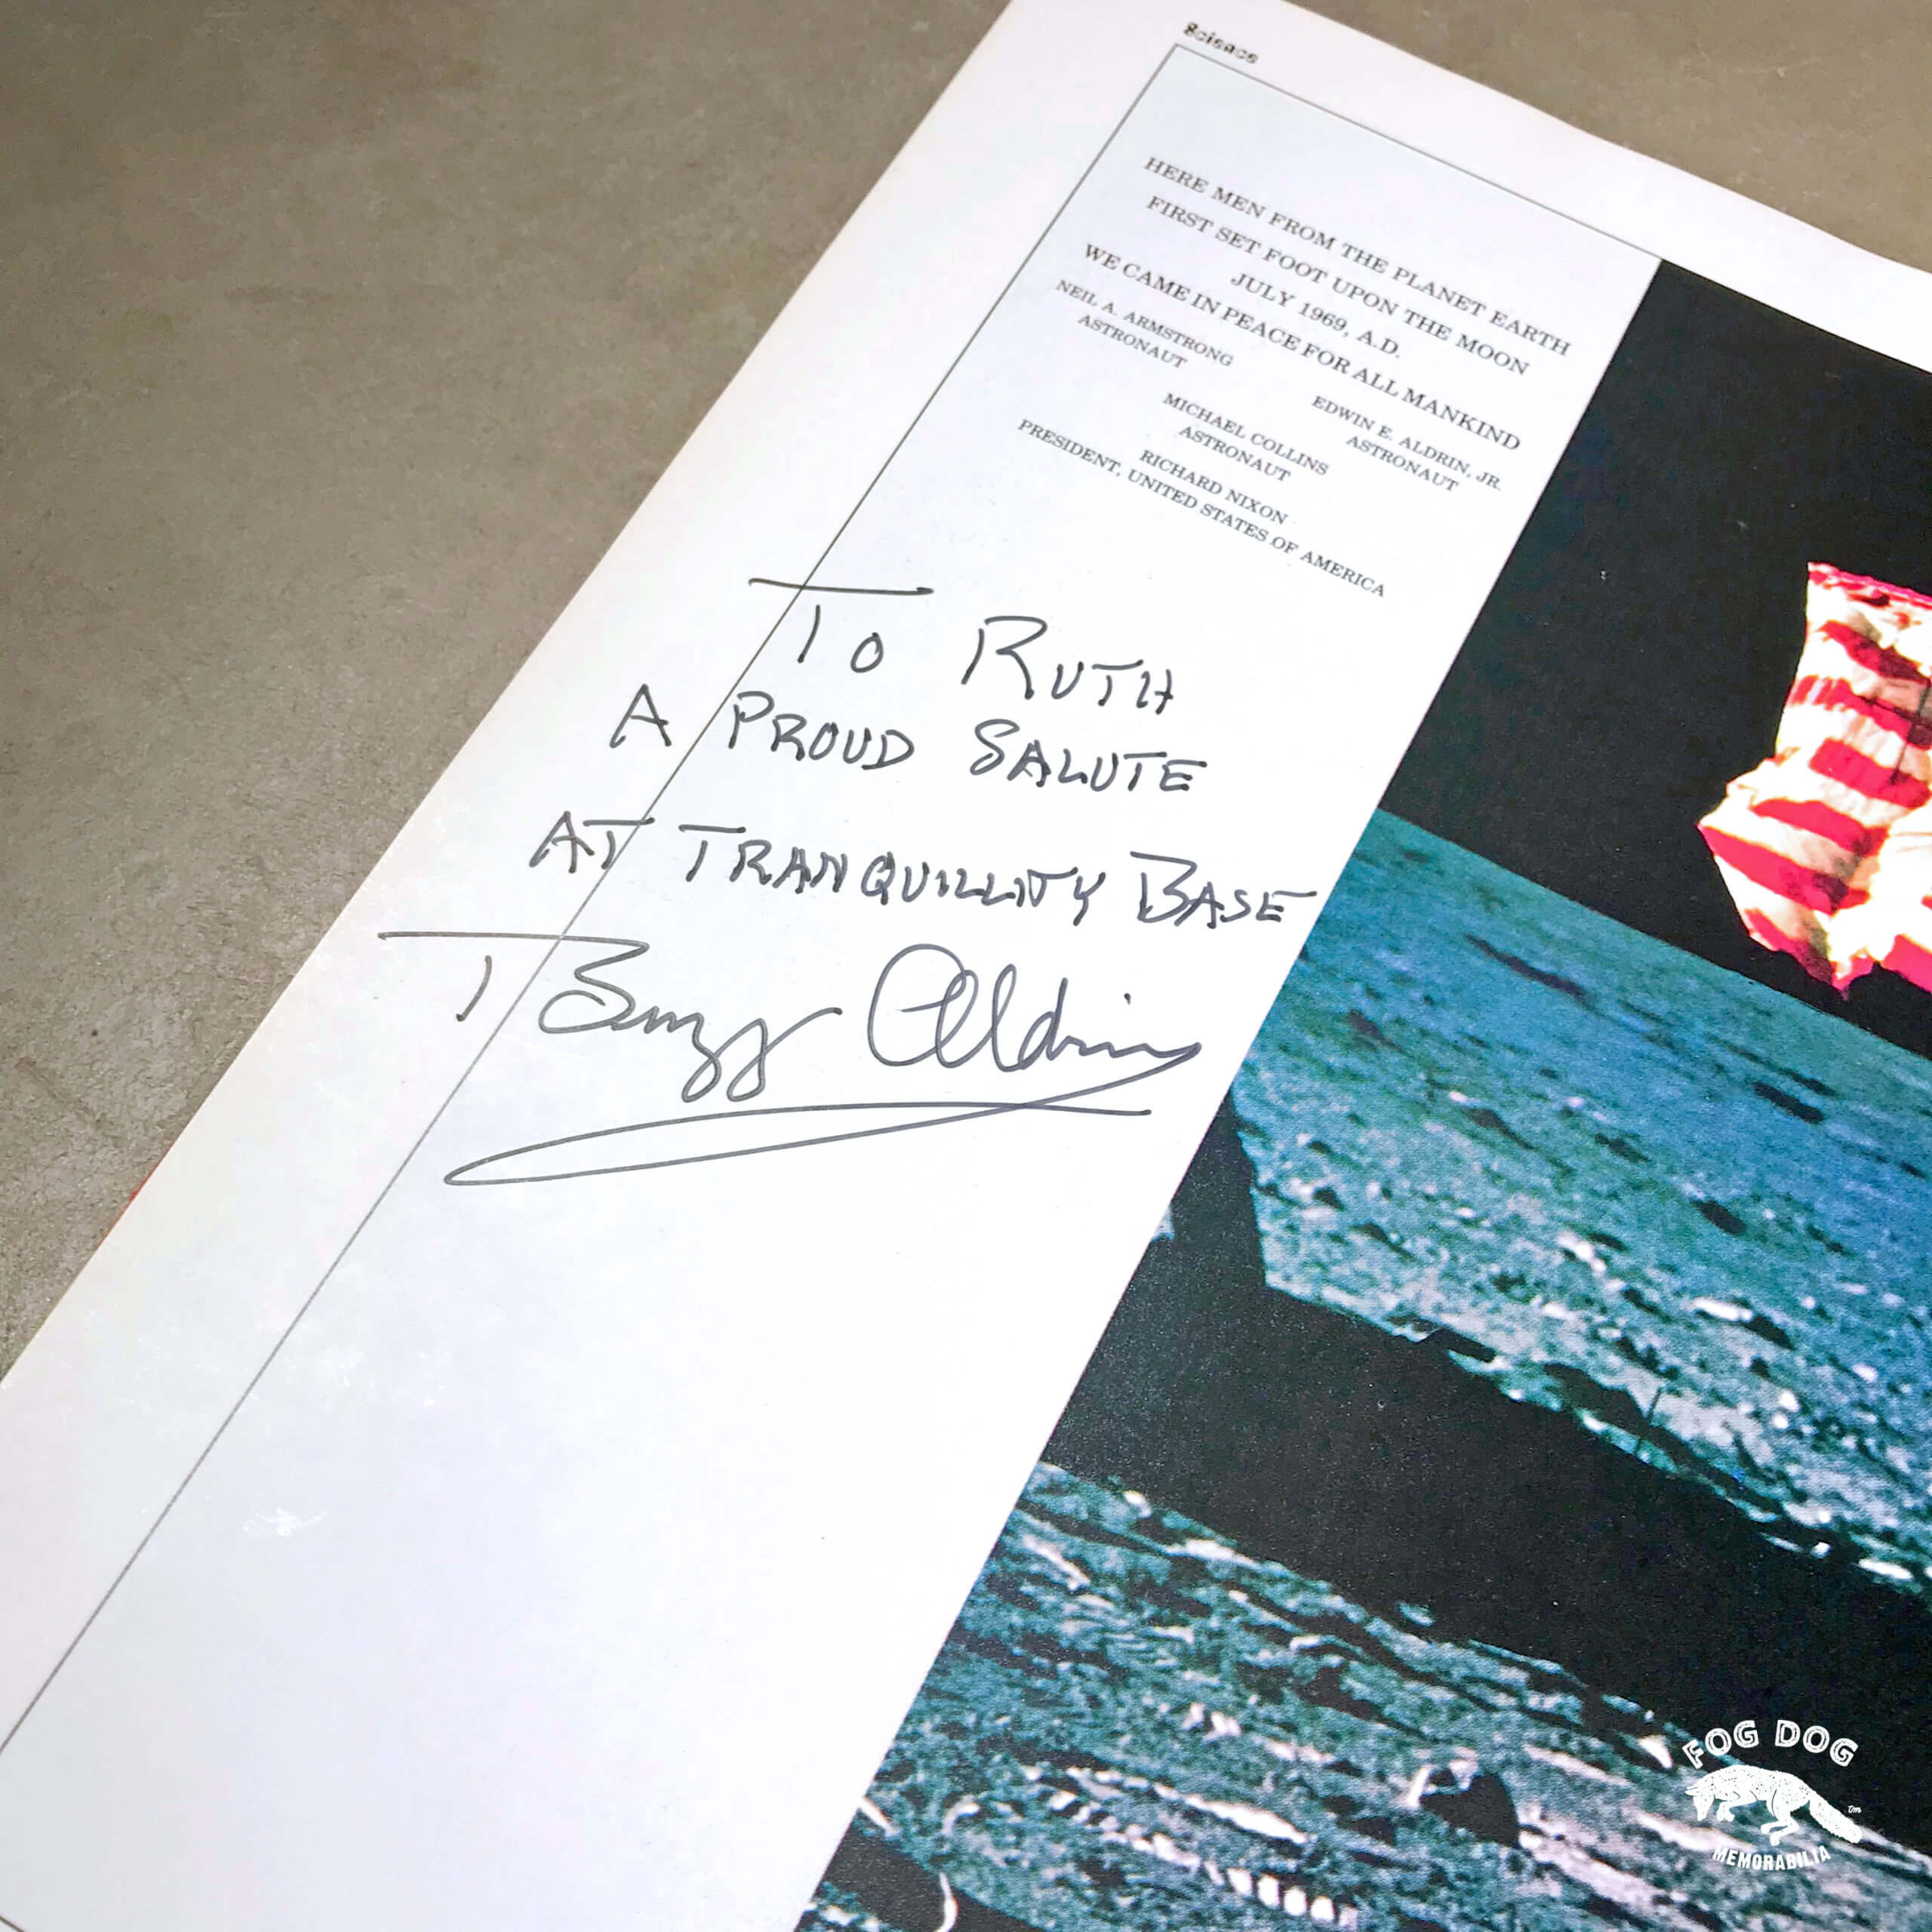 Science
HERE MEN FROM THE PLANET EARTH
FIRST SET FOOT UPON THE MOON
JULY 1969, A.D.
WE CAME IN PEACE FOR ALL MANKIND
NEIL A. ARMSTRONG
ASTRONAUT
MICHAEL COLLINS
ASTRONAUT
EDWIN E. ALDRIN, JR.
ASTRONAUT
RICHARD NIXON
PRESIDENT, UNITED STATES OF AMERICA
TO RUTH
A PROUD SALUTE
AT TRANQUILLITY BASE
Buzz Aldrin
FOG DOG
TM
MEMORABILIA